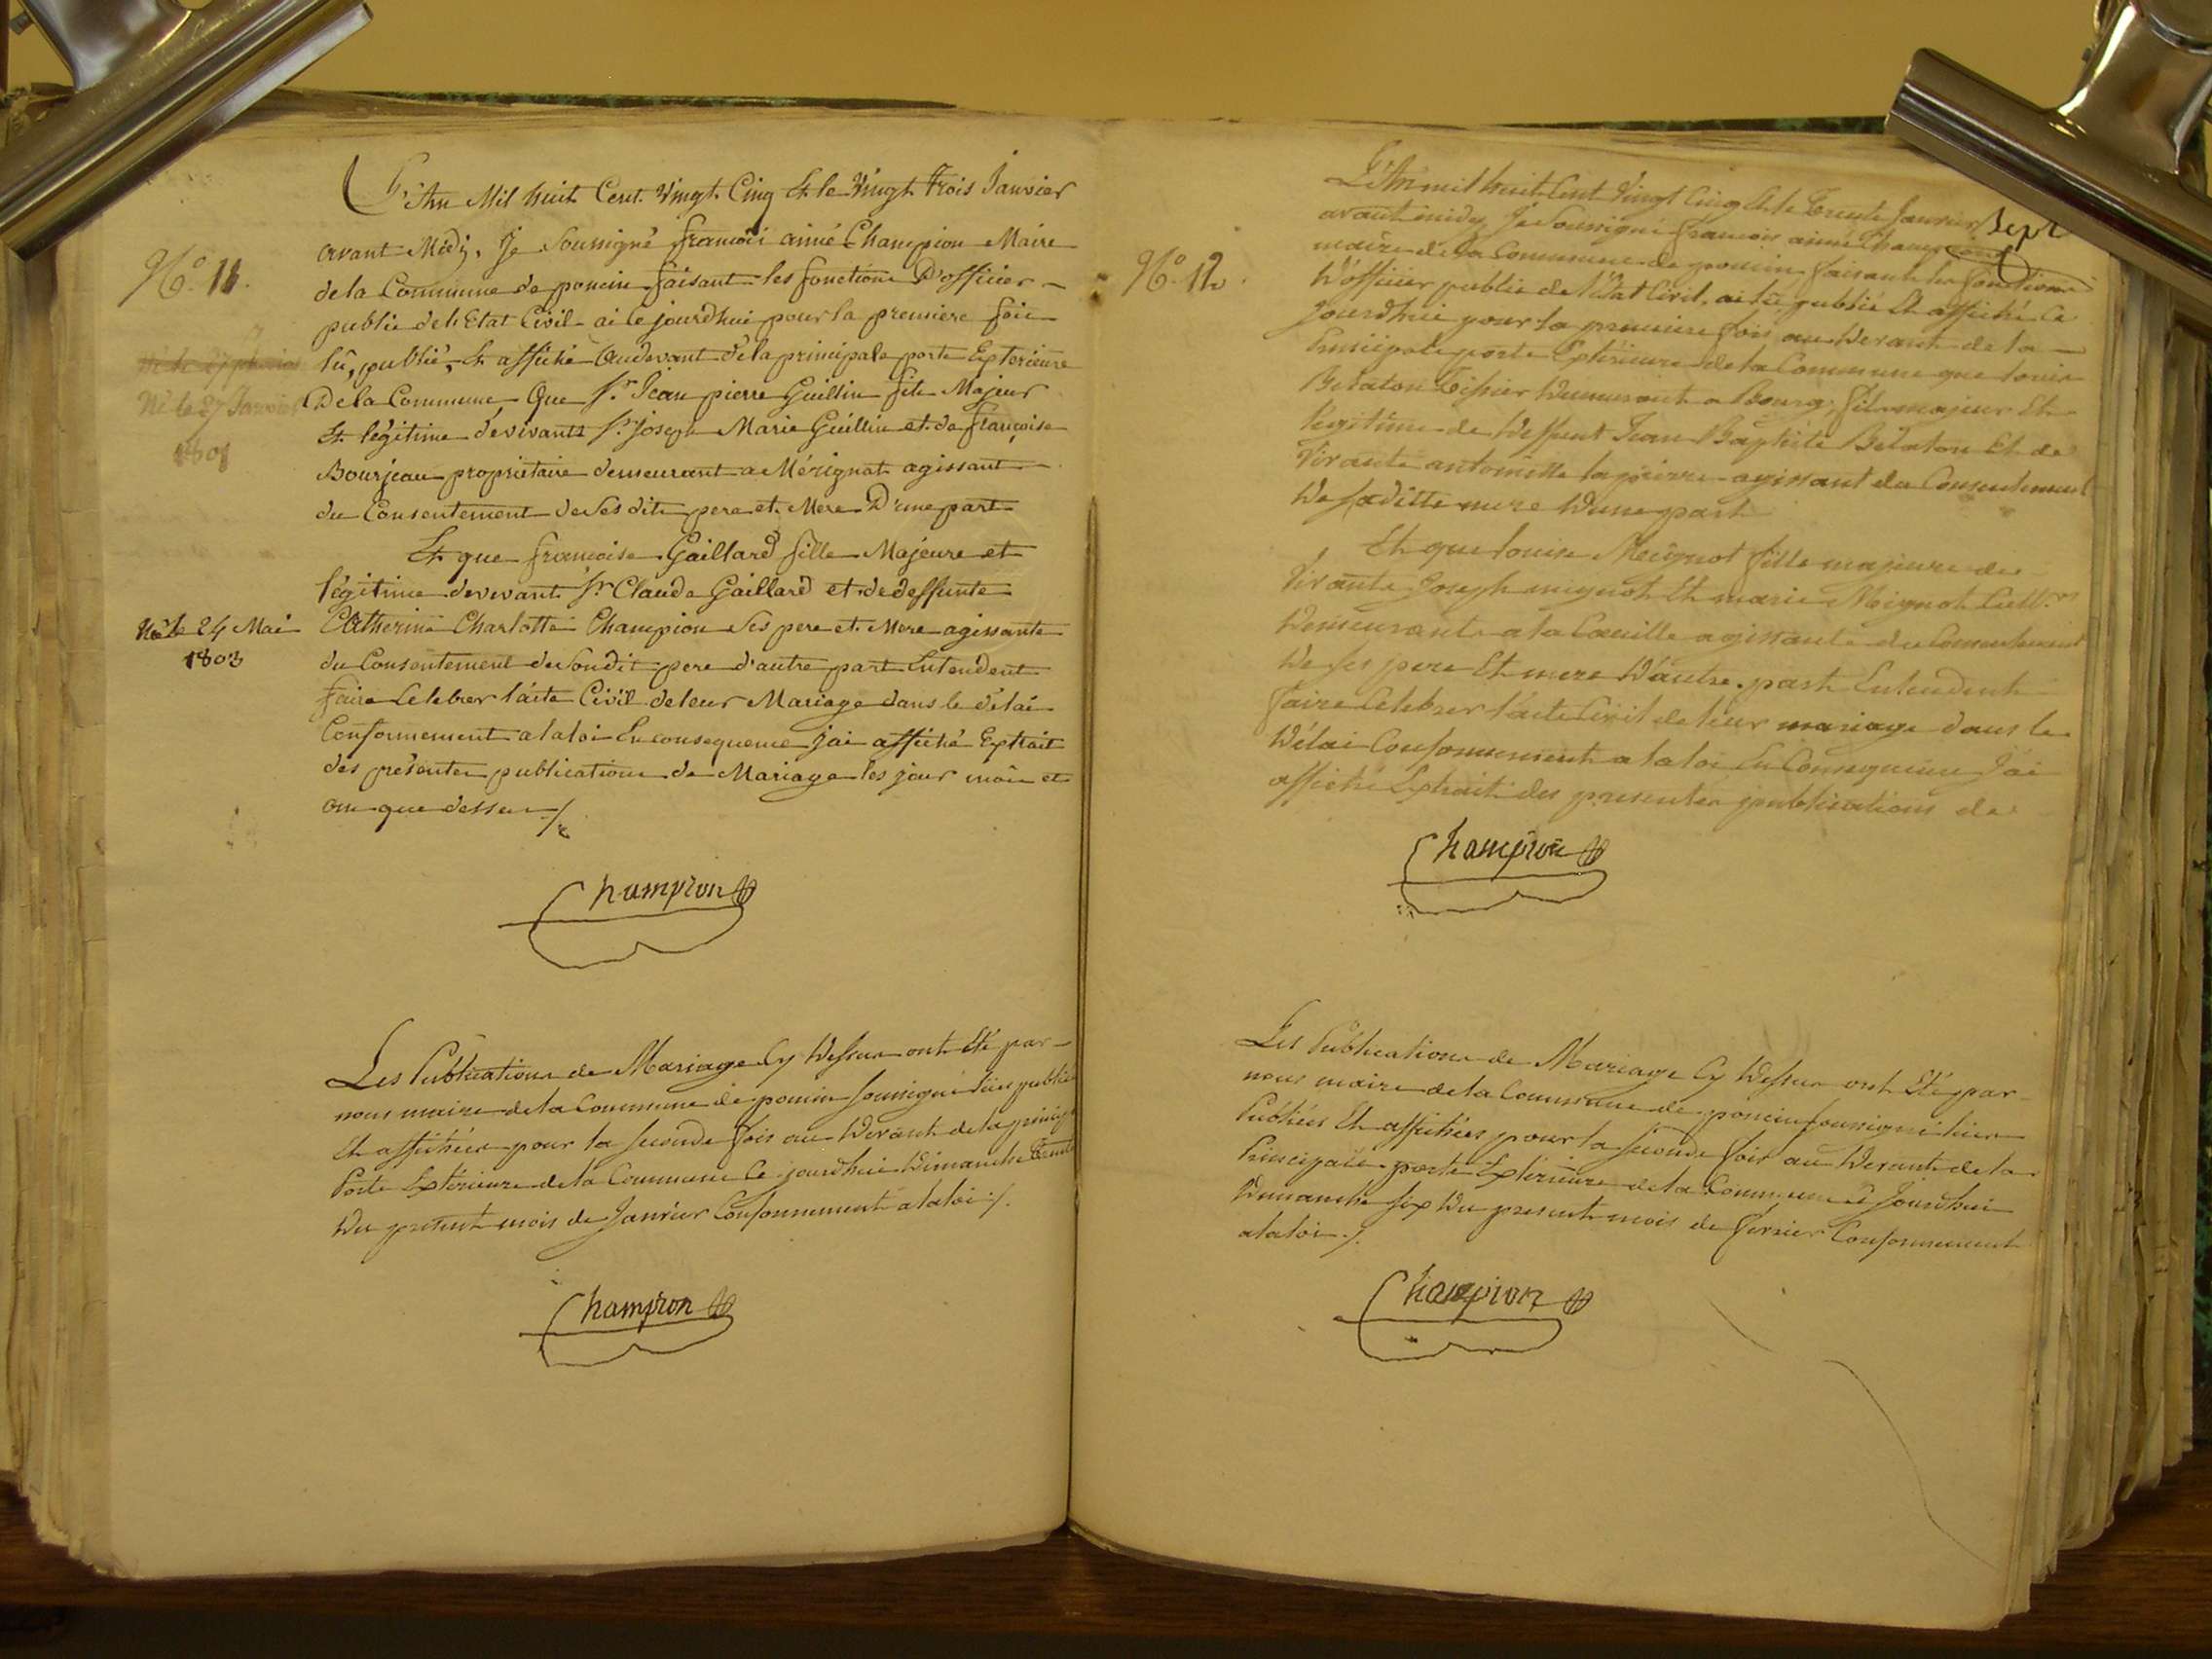 L'An Mil huit Cent Vingt Cinq Et le Vingt Trois Janvier
avant Midi, Je Soussigné françois aimé Champion Maire
N.º 11.
de la Commune de poncin faisant les fonctions D'officier
public de l'Etat Civil ai ce jourdhui pour la premiere fois
lû, publié, Et affiché Audevant de la principale porte Exterieure
Né le 27 Janvier
1801
De la Commune Que Sr. Jean pierre Guillin fils Majeur
Et légitime de vivants Sr. Joseph Marie Guillin et de françoise
Bourjeau propriétaire demeurant a Mérignat agissant
du Consentement de Ses dits pere et Mere D'une part
Et que françoise Gaillard fille Majeure et
légitime de vivant Sr Claude Gaillard et de deffunte
Née le 24 Mai
1803
Catherine Charlotte Champion Ses pere et Mere agissante
du Consentement de Sondit pere d'autre part Entendent
faire Celebrer l'acte Civil de leur Mariage dans le délai
Conformement a la loi En consequence jai affiché Extrait
des présentes publications de Mariage les jour mois et
an que dessus ./.
Champion
Les Publications de Mariage Cy Dessus ont Eté par
nous maire de la Commune de poncin soussigné lües publiées
Et affichées pour la seconde fois au Devant de la
Porte Extérieure de la Commune Ce jourdhui Dimanche Trente
Du présent mois de Janvier Conformement a la loi ./.
Champion
L'An mil huit Cent Vingt Cinq Et le Trente Janvier Sept
avant midy Je Soussigné françois aimé Champion
N.º 12.
maire de la Commune de poncin faisant les fonctions
D'officier public de l'Etat Civil, ai lu publié Et affiché Ce
Jourdhui pour la premiere fois au Devant de la
Principale porte Extérieure de la Commune que Louis
Belaton Demeurant a Bourg, fils majeur Et
Légitime de Deffunt Jean Baptiste Belaton Et de
Vivante antoinette lapierre agissant du Consentement
De Saditte mere D'une part
Et que Louise Meignot fille majeure de
Vivants Joseph mignot Et marie Moignot Cultrs
Demeurants a la agissante du Consentement
De Ses pere Et mere D'autre part Entendent
faire Celebrer l'acte Civil de leur mariage dans le
Délai Conformement a la loi En Consequence Jai
affiché Extrait des presentes publications de
Champion
Les Publications de Mariage Cy Dessus ont Eté par
nous maire de la Commune de poncin soussigné lües
Publiées Et affichées pour la seconde fois au Devant de la
Principale porte Extérieure de la Commune Ce Jourdhui
Dimanche Six Du present mois de fevrier Conformement
a la loi ./.
Champion